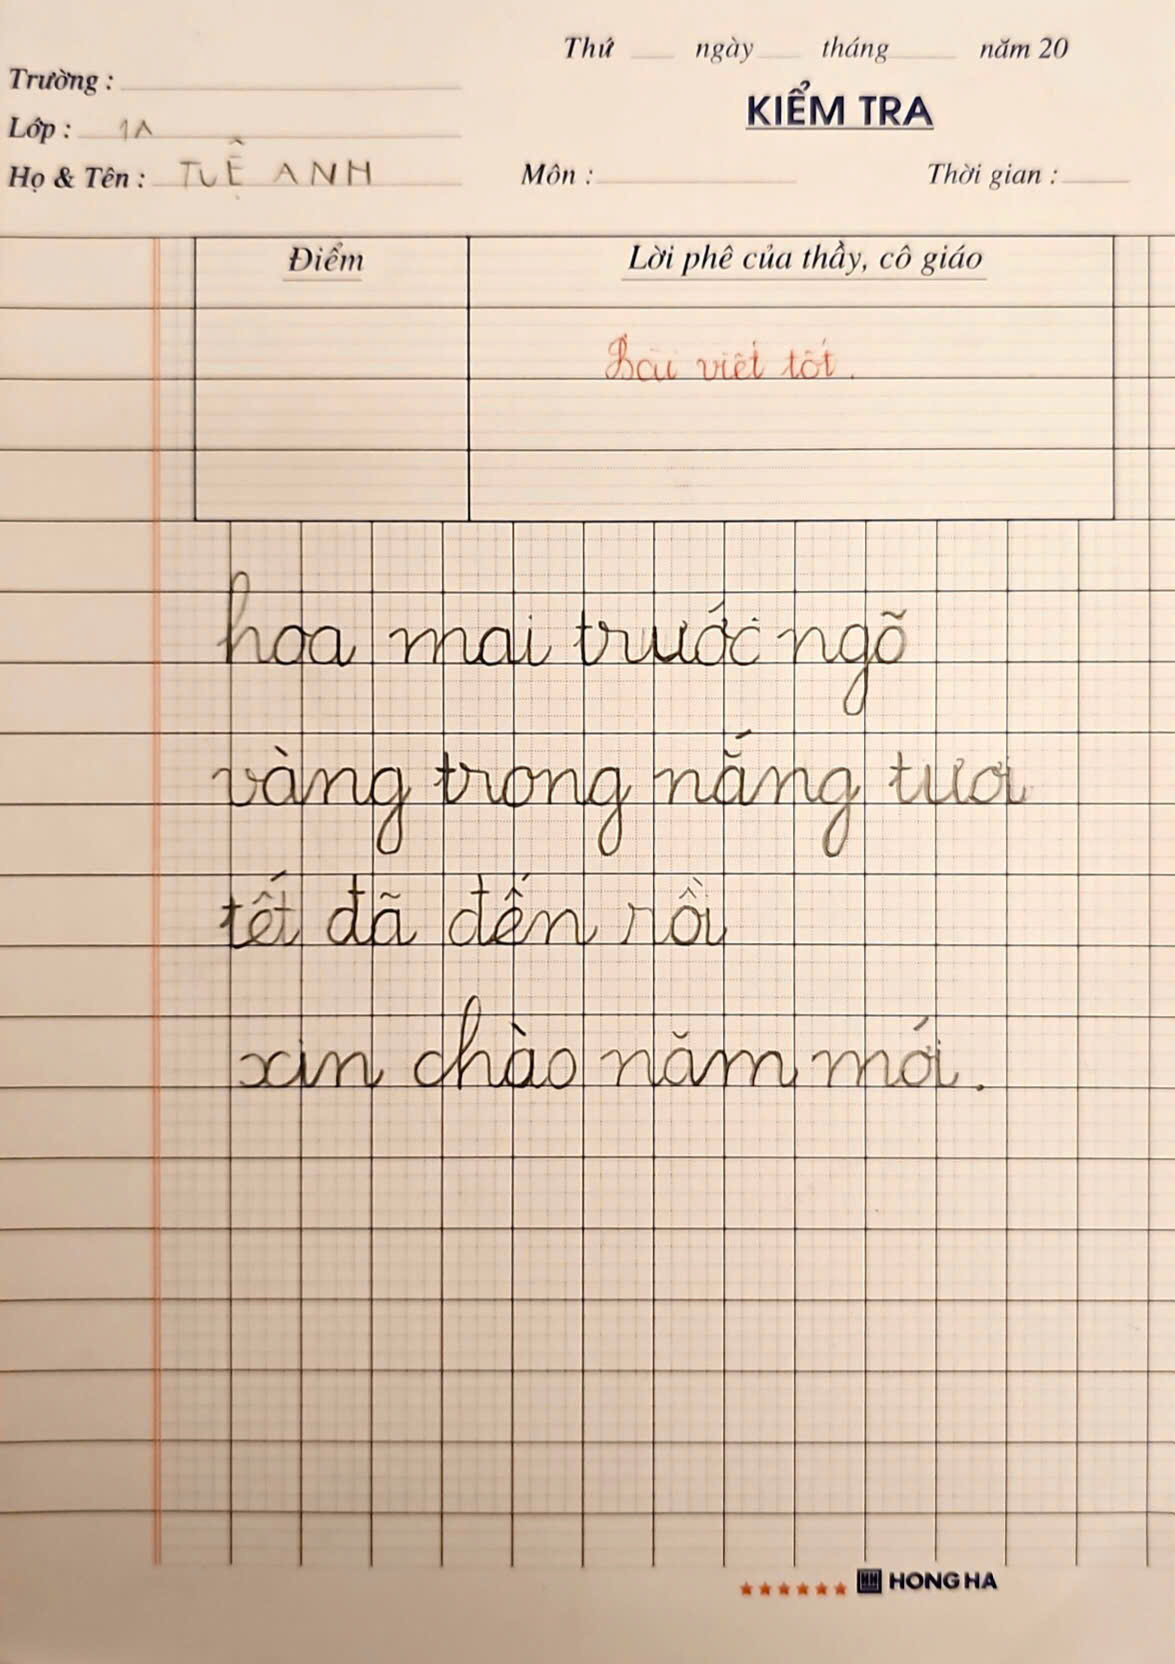 Thứ ngày tháng năm 20
Trường :
KIỂM TRA
Lớp : 1A
Họ & Tên : TUỆ ANH Môn : Thời gian :
Điểm Lời phê của thầy, cô giáo
Bài viết tốt.
hoa mai trước ngõ
vàng trong nắng tươi
tết đã đến rồi
xin chào năm mới.
HONG HA